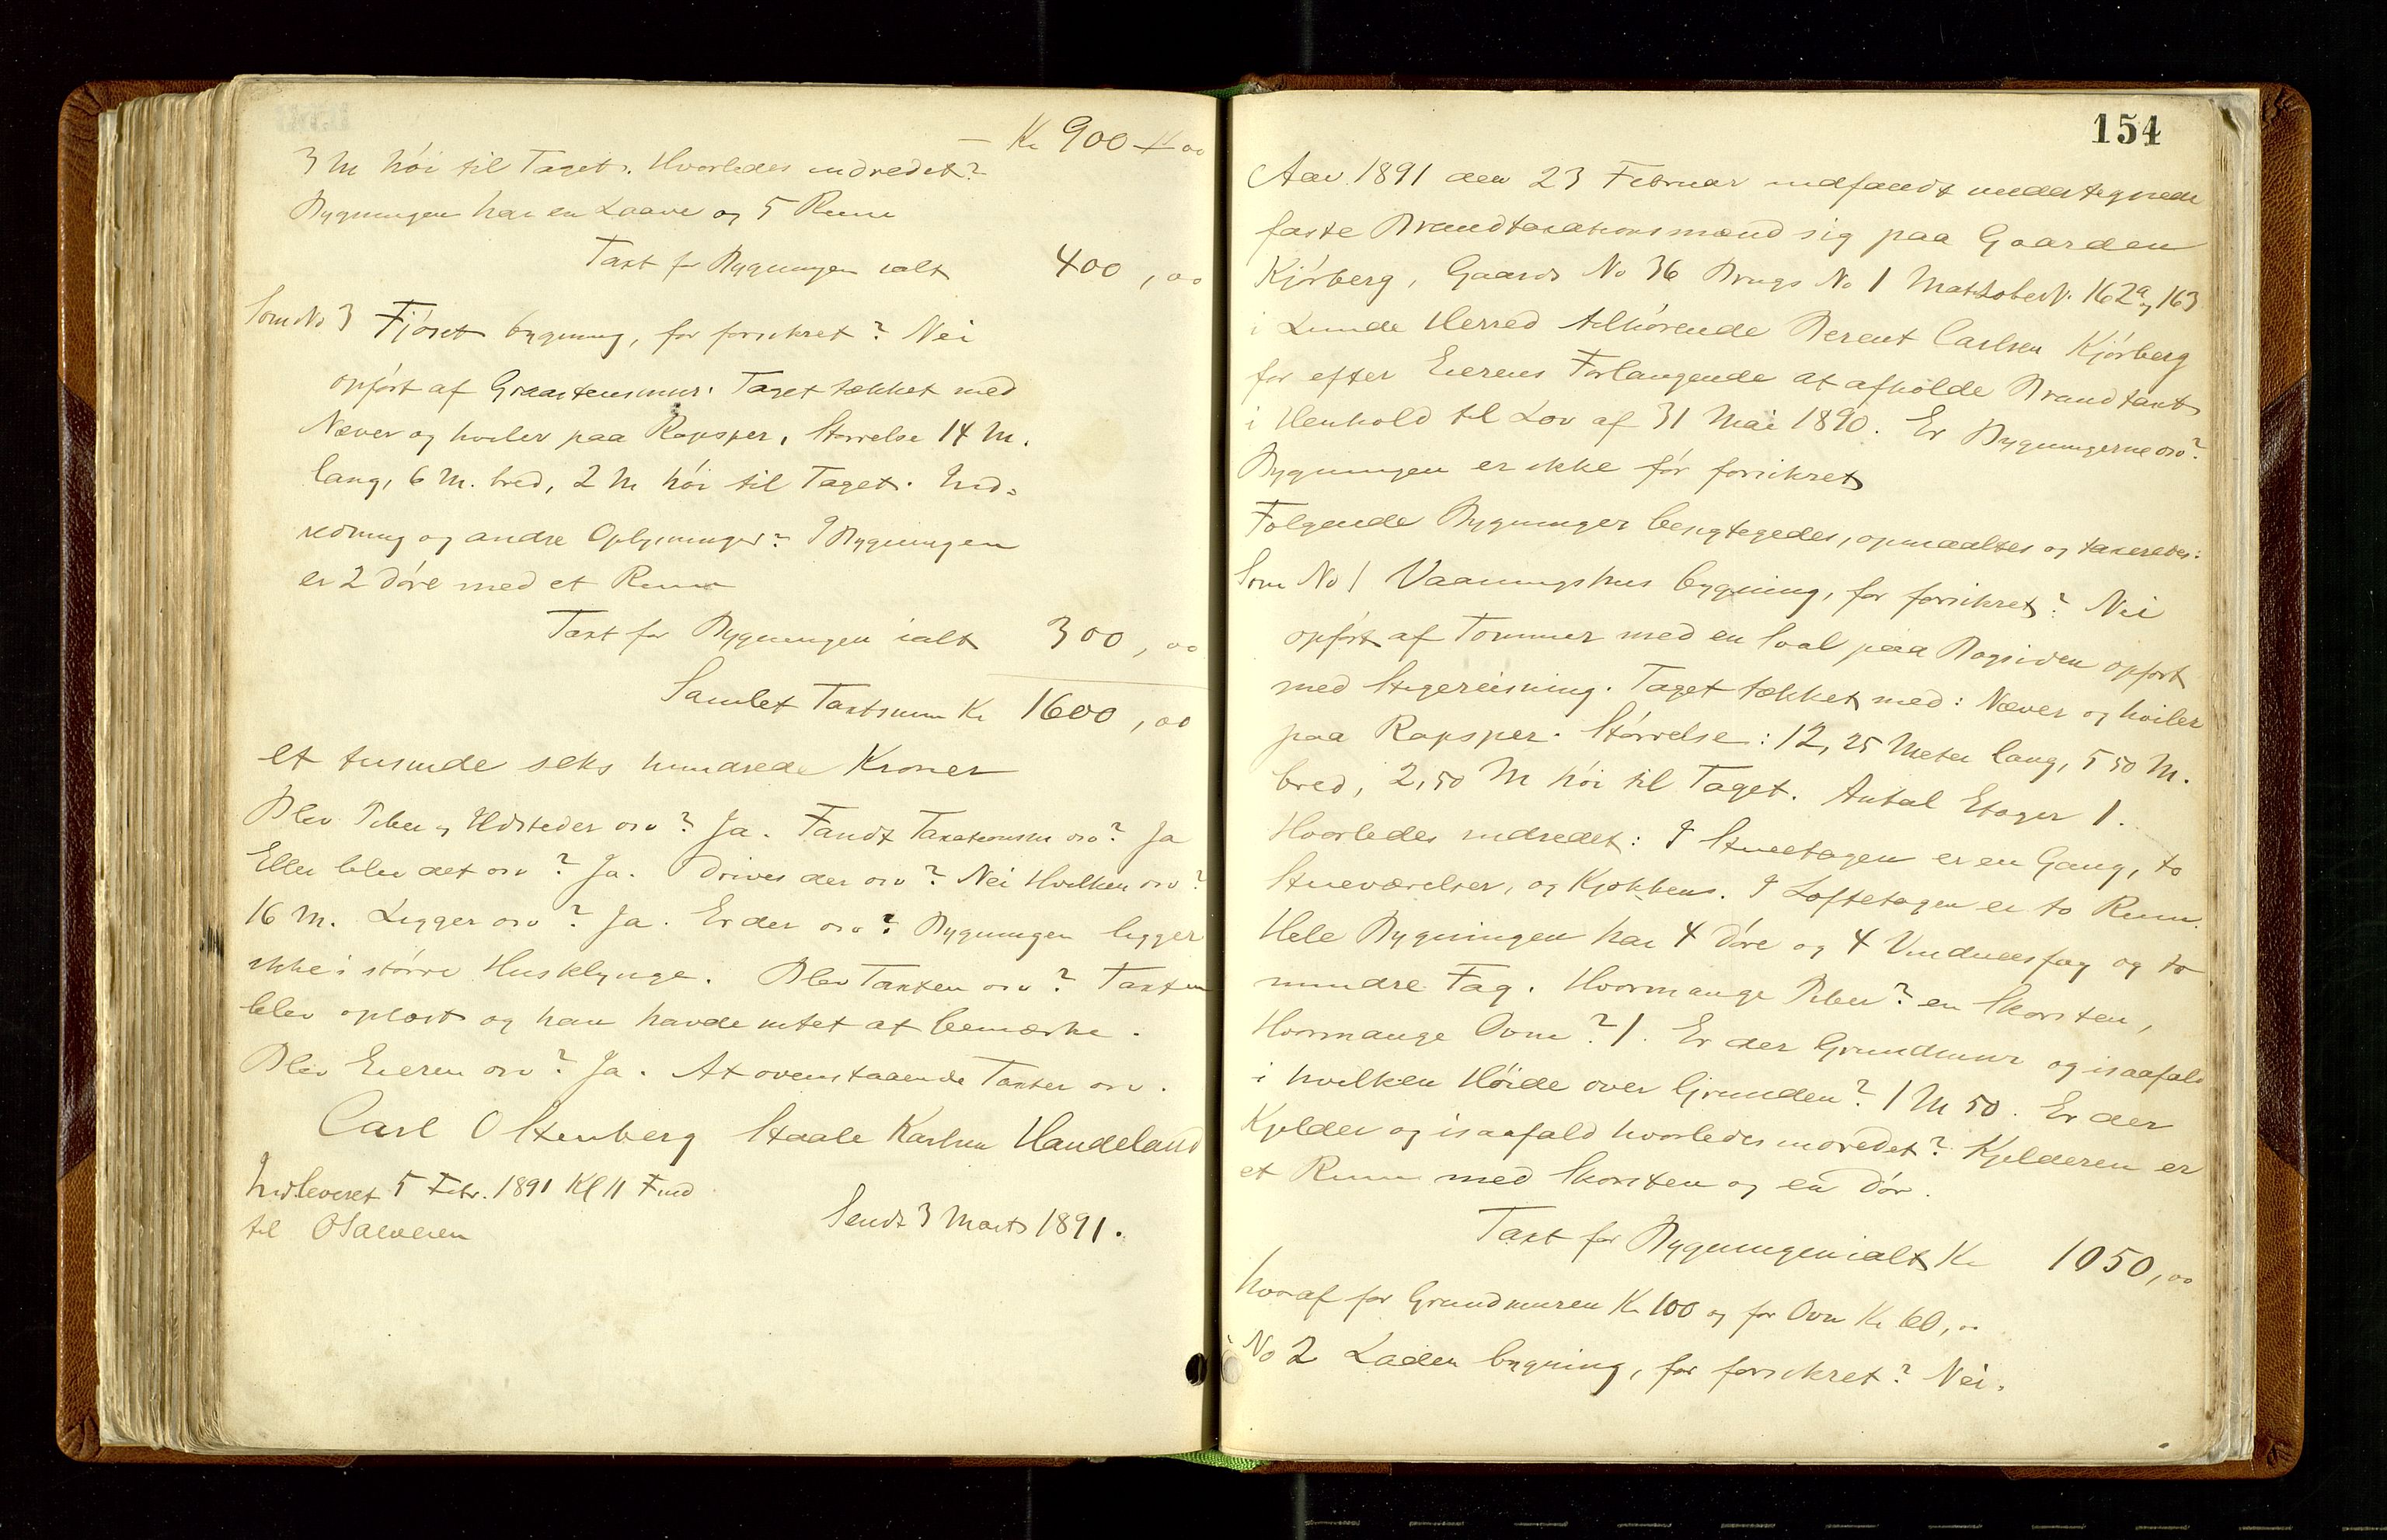 — Kr 900 – 00
3 M høi til Taget. Hvorledes indredet?
Bygningen har en Laave og 5 Rum
Taxt for Bygningen ialt 400,00
Som No 3 Fjøset bygning, før forsikret? Nei
opført af Graastensmur. Taget tækket med
Næver og hviler paa Ropsper, Størrelse 14 M.
lang, 6 M. bred, 2 M høi til Taget. Ind-
redning og andre Oplysninger? I Bygningen
er 2 døre med et Rum
Taxt for Bygningen ialt 300,00
Samlet Taxtsum Kr 1600,00
et tusinde seks hundrede Kroner
Blev Piber og Ildsteder osv? Ja. Fandt Taxationsm osv? Ja
Eller blev det osv? Ja. Drives der osv? Nei Hvilken osv?
16 M. Ligger osv? Ja. Er der osv? Bygningen ligger
ikke i større Husklynge. Blev Taxten osv? Taxten
blev oplæst og han havde intet at bemærke.
Blev Eieren osv? Ja. At ovenstaaende Taxter osv.
Carl O Stenberg Staale Karlsen Handeland
Indleveret 5 Febr. 1891 Kl 11 Fmd
til O Salvesen Sendt 3 Marts 1891.
154
Aar 1891 den 23 Februar indfandt undertegnede
faste Brandtaxationsmænd sig paa Gaarden
Kjørberg, Gaards No 36 Brugs No 1 Mat. Løbe N. 162a og 163
i Lunde Herred tilhørende Berent Carlsen Kjørberg
for efter Eierens Forlangende at afholde Brandtaxt
i Henhold til Lov af 31 Mai 1890. Er Bygningerne osv?
Bygningen er ikke før forsikret
Følgende Bygninger besigtigedes, opmaaltes og taxeredes:
Som No 1 Vaaningshus bygning, før forsikret? Nei
opført af Tømmer med en Sval paa Bagsiden opført
med Stagereisning. Taget tækket med: Næver og hviler
paa Ropsper. Størrelse: 12,25 Meter lang, 5 50 M.
bred, 2,50 M høi til Taget. Antal Etager 1.
Hvorledes indredet: I Stueetagen er en Gang, to
Stueværelser, og Kjøkken. I Loftetagen er to Rum.
Hele Bygningen har 4 døre og 4 Vinduesfag og to
mindre Fag. Hvormange Piber? en Skorsten,
Hvormange Ovne? 1. Er der Grundmur og isaafald
i hvilken Høide over Grunden? 1 M 50. Er der
Kjelder og isaafald hvorledes indredet? Kjelderen er
et Rum med Skorsten og en dør.
Taxt for Bygningen ialt Kr 1050,00
hvoraf for Grundmuren Kr 100 og for Ovn Kr 60,00
No 2 Laden bygning, før forsikret? Nei.